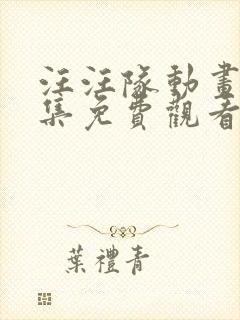 汪汪隊動畫
集免費觀看
葉禮青